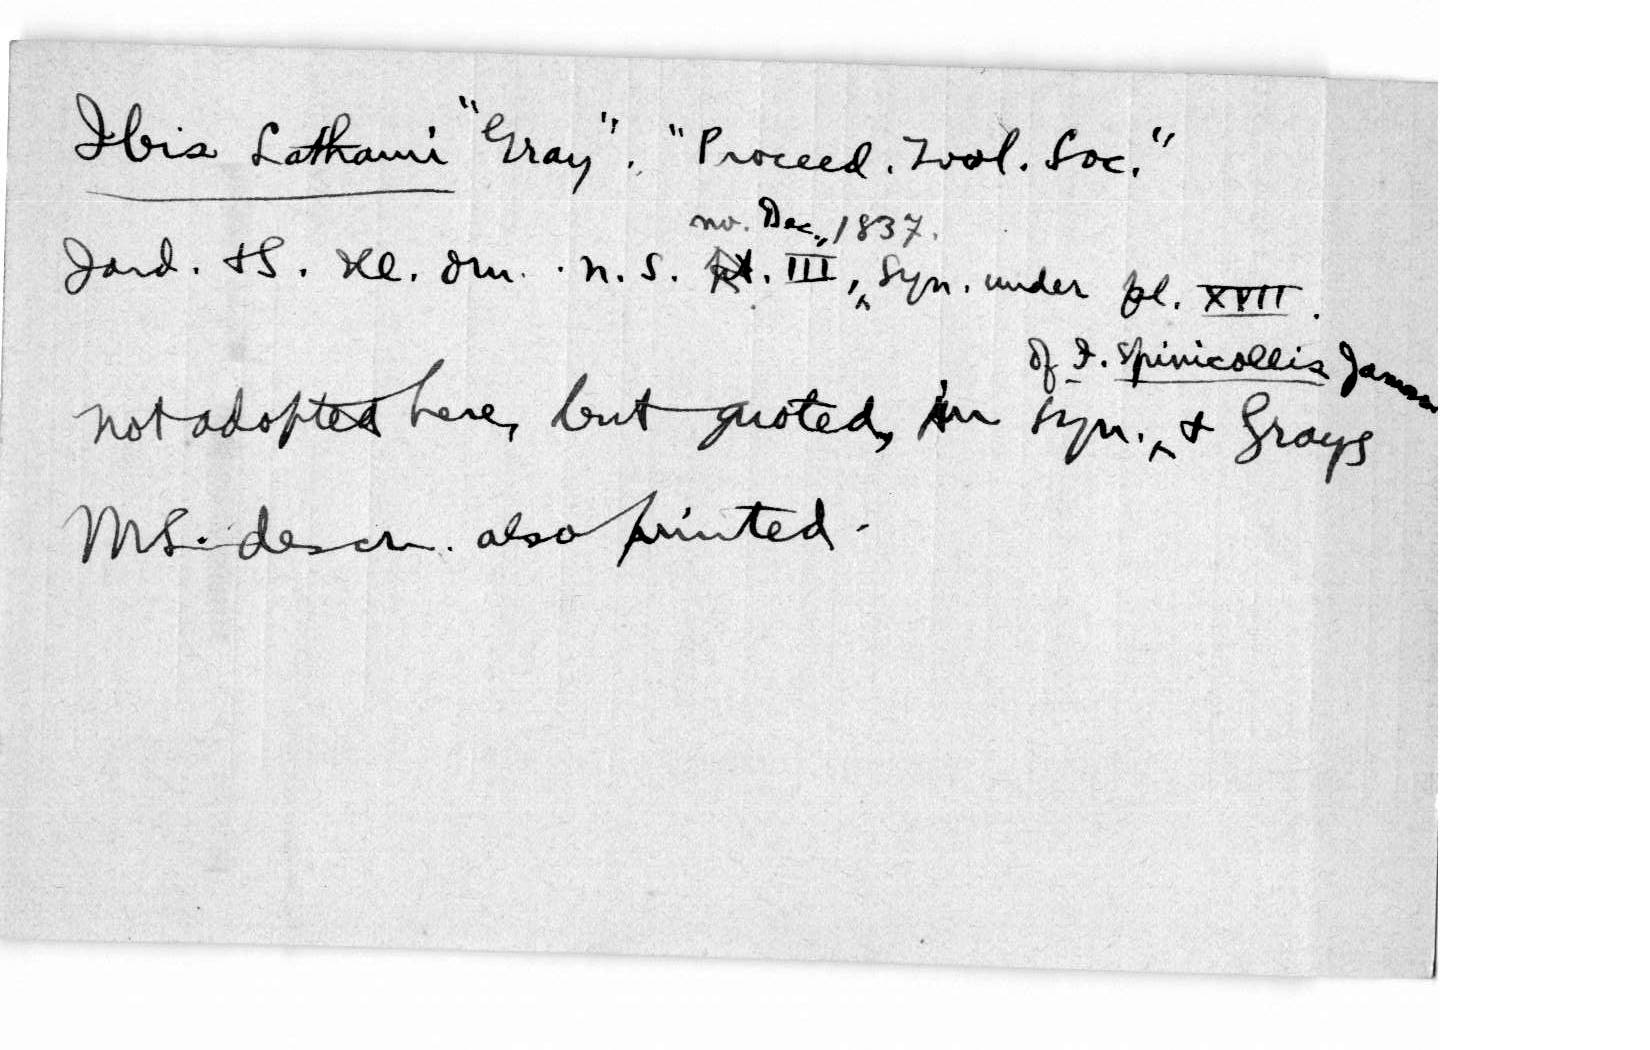 Ibis Lathami "Gray". "Proceed. Zool. Soc."
no. Dec., 1837.
Jard. & S. Ill. Orn. n. s. pt. III, ^ Syn. under pl. XVII.
of I. spinicollis Jameson
not adopted here, but quoted, in syn. ^ & Grays
MS. descr. also printed.